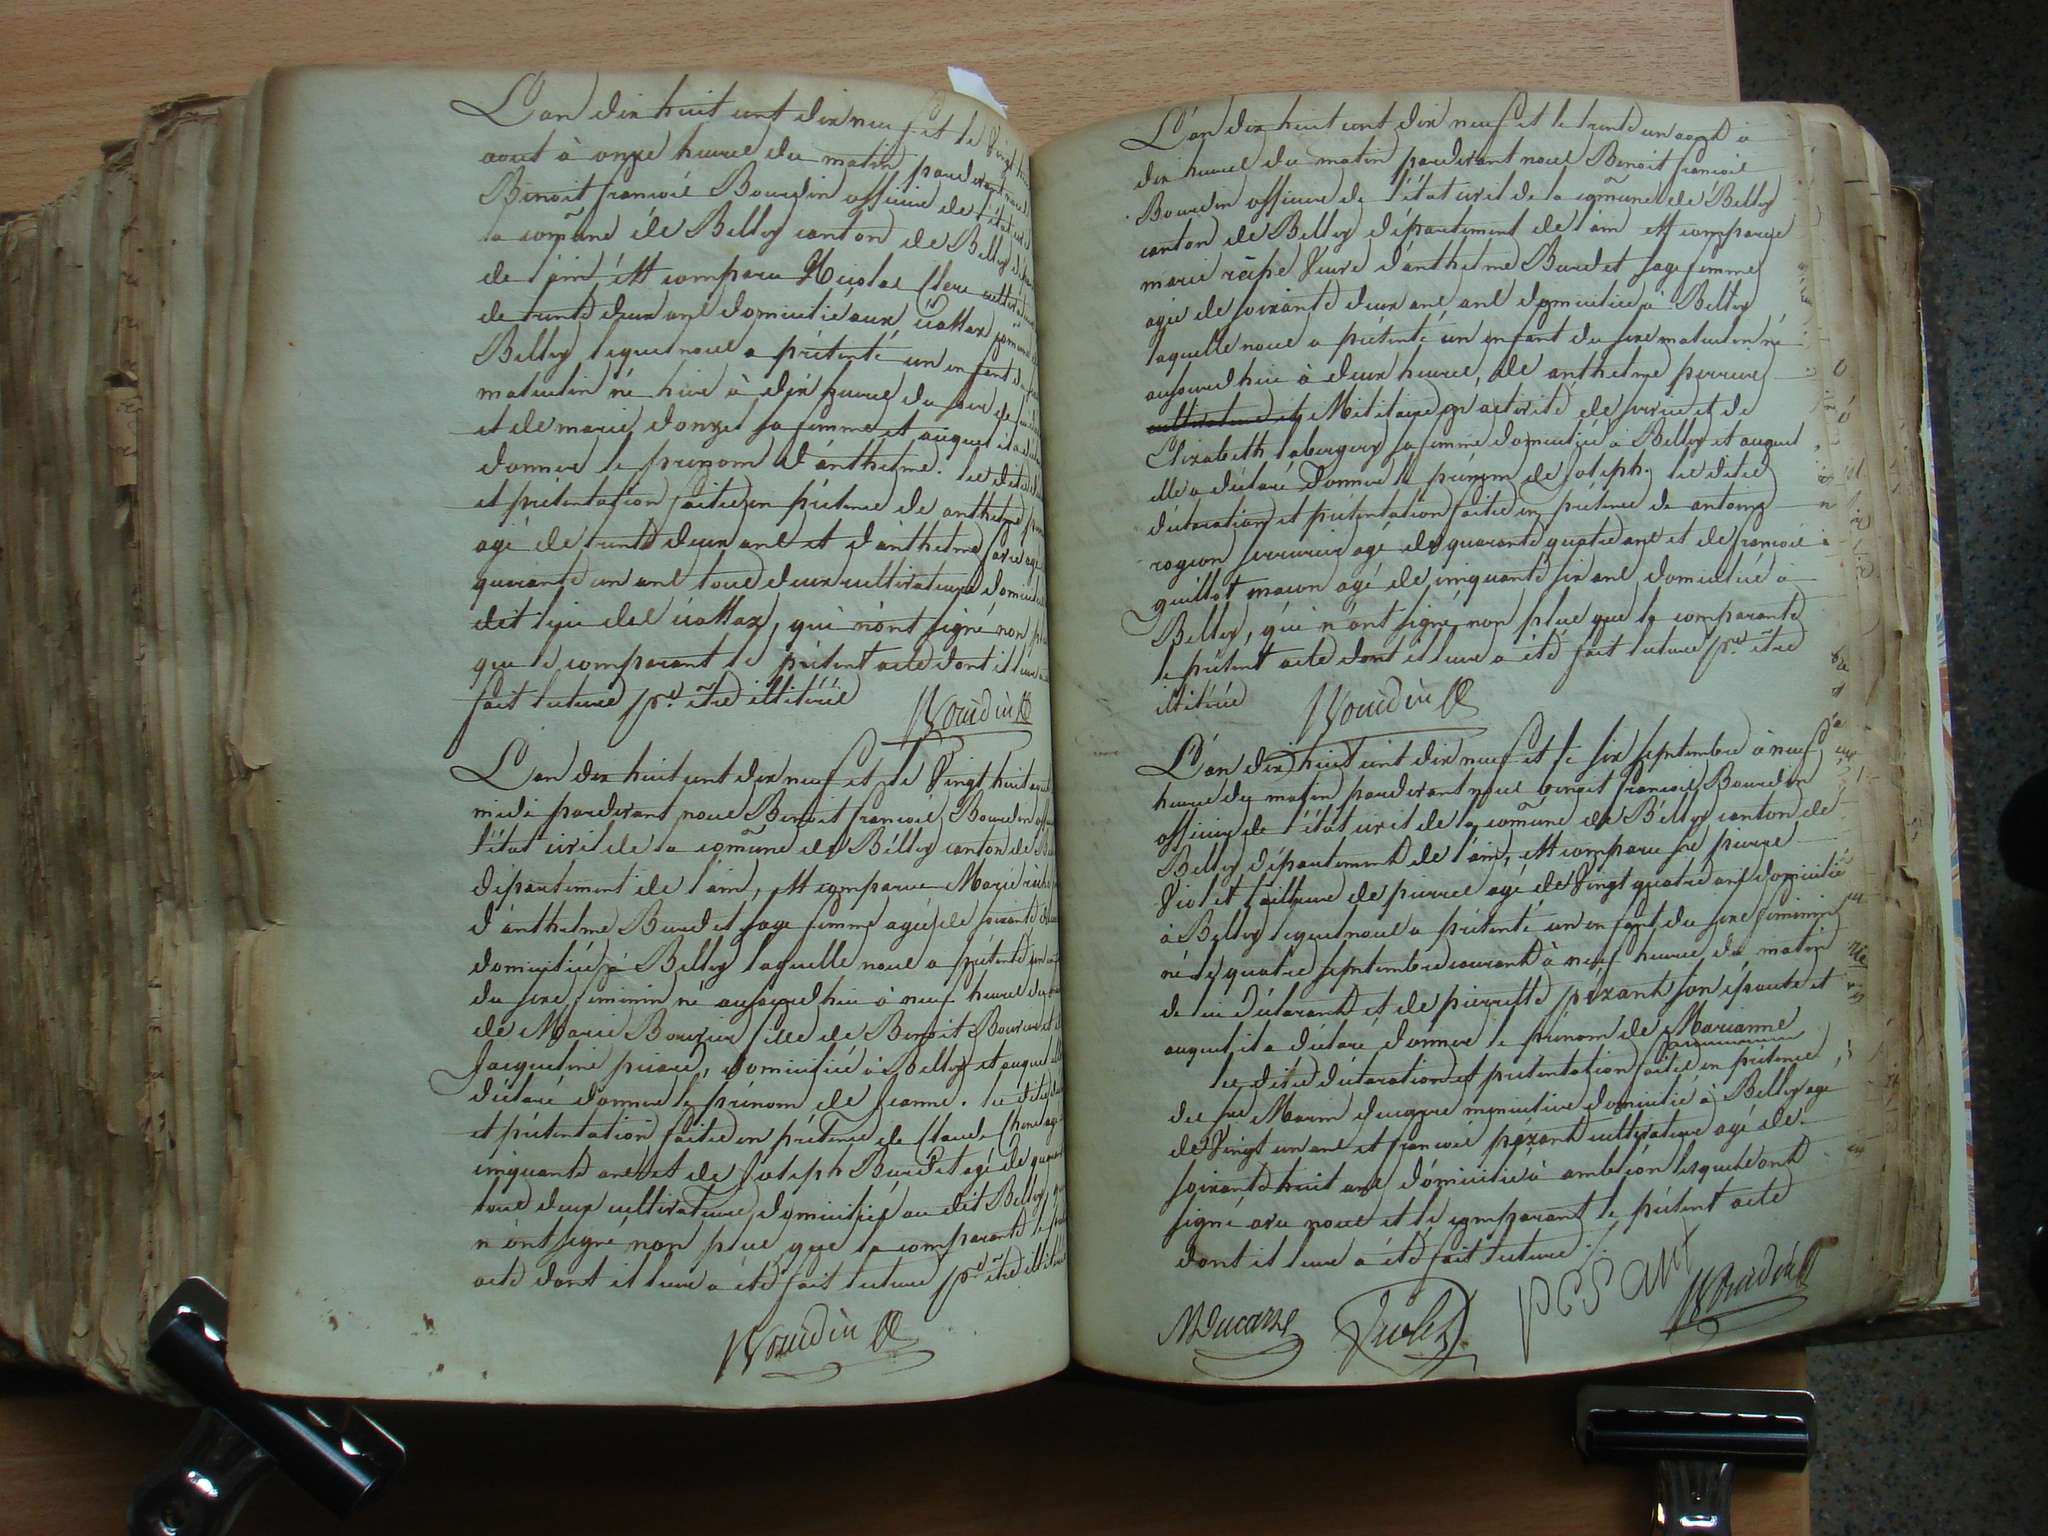 L'an dix huit cent dix neuf et le vingt
aout à onze heures du matin pardevant nous
Benoit françois Bourdin officier de l'état
la comune de Belley canton de Belley
de l'ain, est comparu Nicolas Clerc cultivateur
de trente deux ans domicilié aux
Belley lequel nous a présenté un enfant du
masculin né hier à dix heures du soir de
et de marie donzel sa femme et auquel il a
donner le prenom d'anthelme. les dites
et présentation faites en présence de anthelme
agé de trente deux ans et d'anthelme
quarante un ans tous deux cultivateurs
dit lieu des, qui n'ont signé non
que le comparant le présent acte dont il leur
fait lecture pr. être illitérés
Bourdin
L'an dix huit cent dix neuf et le Vingt huit
midi pardevant nous Benoit françois Bourdin
l'état civil de la comune de Belley canton de
département de l'ain, est comparue Marie
d'anthelme Burdet sage femme agée de soixante
domiciliée à Belley laquelle nous a présenté
du sexe feminin né aujourd'hui à neuf heures du
de Marie Bouvier fille de Benoit Bouvier et
Jacqueline, domiciliée à Belley et auquel
déclaré donner le prénom de Jeanne. les dites
et présentation faites en présence de Claude
cinquante ans et de Joseph Burdet agé de
tous deux cultivateurs domiciliés au dit Belley
n'ont signé non plus que la comparante le
acte dont il leur a été fait lecture pr. être
Bourdin
L'an dix huit cent dix neuf et le trente un aout à
dix heures du matin pardevant nous Benoit françois
Bourdin officier de l'état civil de la comune de Belley
canton de Belley département de l'ain est comparue
marie Veuve d'anthelme Burdet sage femme
agée de soixante deux ans ans domiciliée à Belley
laquelle nous a présenté un enfant du sexe masculin né
aujourd'hui à deux heures, de anthelme perrier
cultivateur Militaire en activité de service et de
Elizabeth sa femme domiciliée à Belley et auquel
elle a déclaré donner le prénom de Joseph. les dites
déclaration et présentation faites en présence de antoine
rogeon serrurier agé de quarante quatre ans et de françois
guillot macon agé de cinquante six ans domiciliés à
Belley, qui n'ont signé non plus que la comparante
le présent acte dont il leur a été fait lecture pr. être
illitérés
Bourdin
L'an dix huit cent dix neuf et le six septembre à neuf
heures du matin pardevant nous benoit françois Bourdin
officier de l'état civil de la comune de Belley canton de
Belley département de l'ain, est comparu sr. pierre
Violet tailleur de pierres agé de Vingt quatre ans domicilié
à Belley lequel nous a présenté un enfant du sexe feminin
né le quatre septembre courant à neuf heures du matin
de lui déclarant et de pierrette pézant son épouse et
auquel il a déclaré donner le prénom de Marianne
les dites déclaration et présentation faites en présence
des srs Marin ducarre domicilié à Belley agé
de Vingt un ans et françois pézant cultivateur agé de
soixante huit ans domicilié à ambléon lesquels ont
signé avec nous et le comparant le présent acte
dont il leur a été fait lecture./.
MDucarre Violet pesant Bourdin